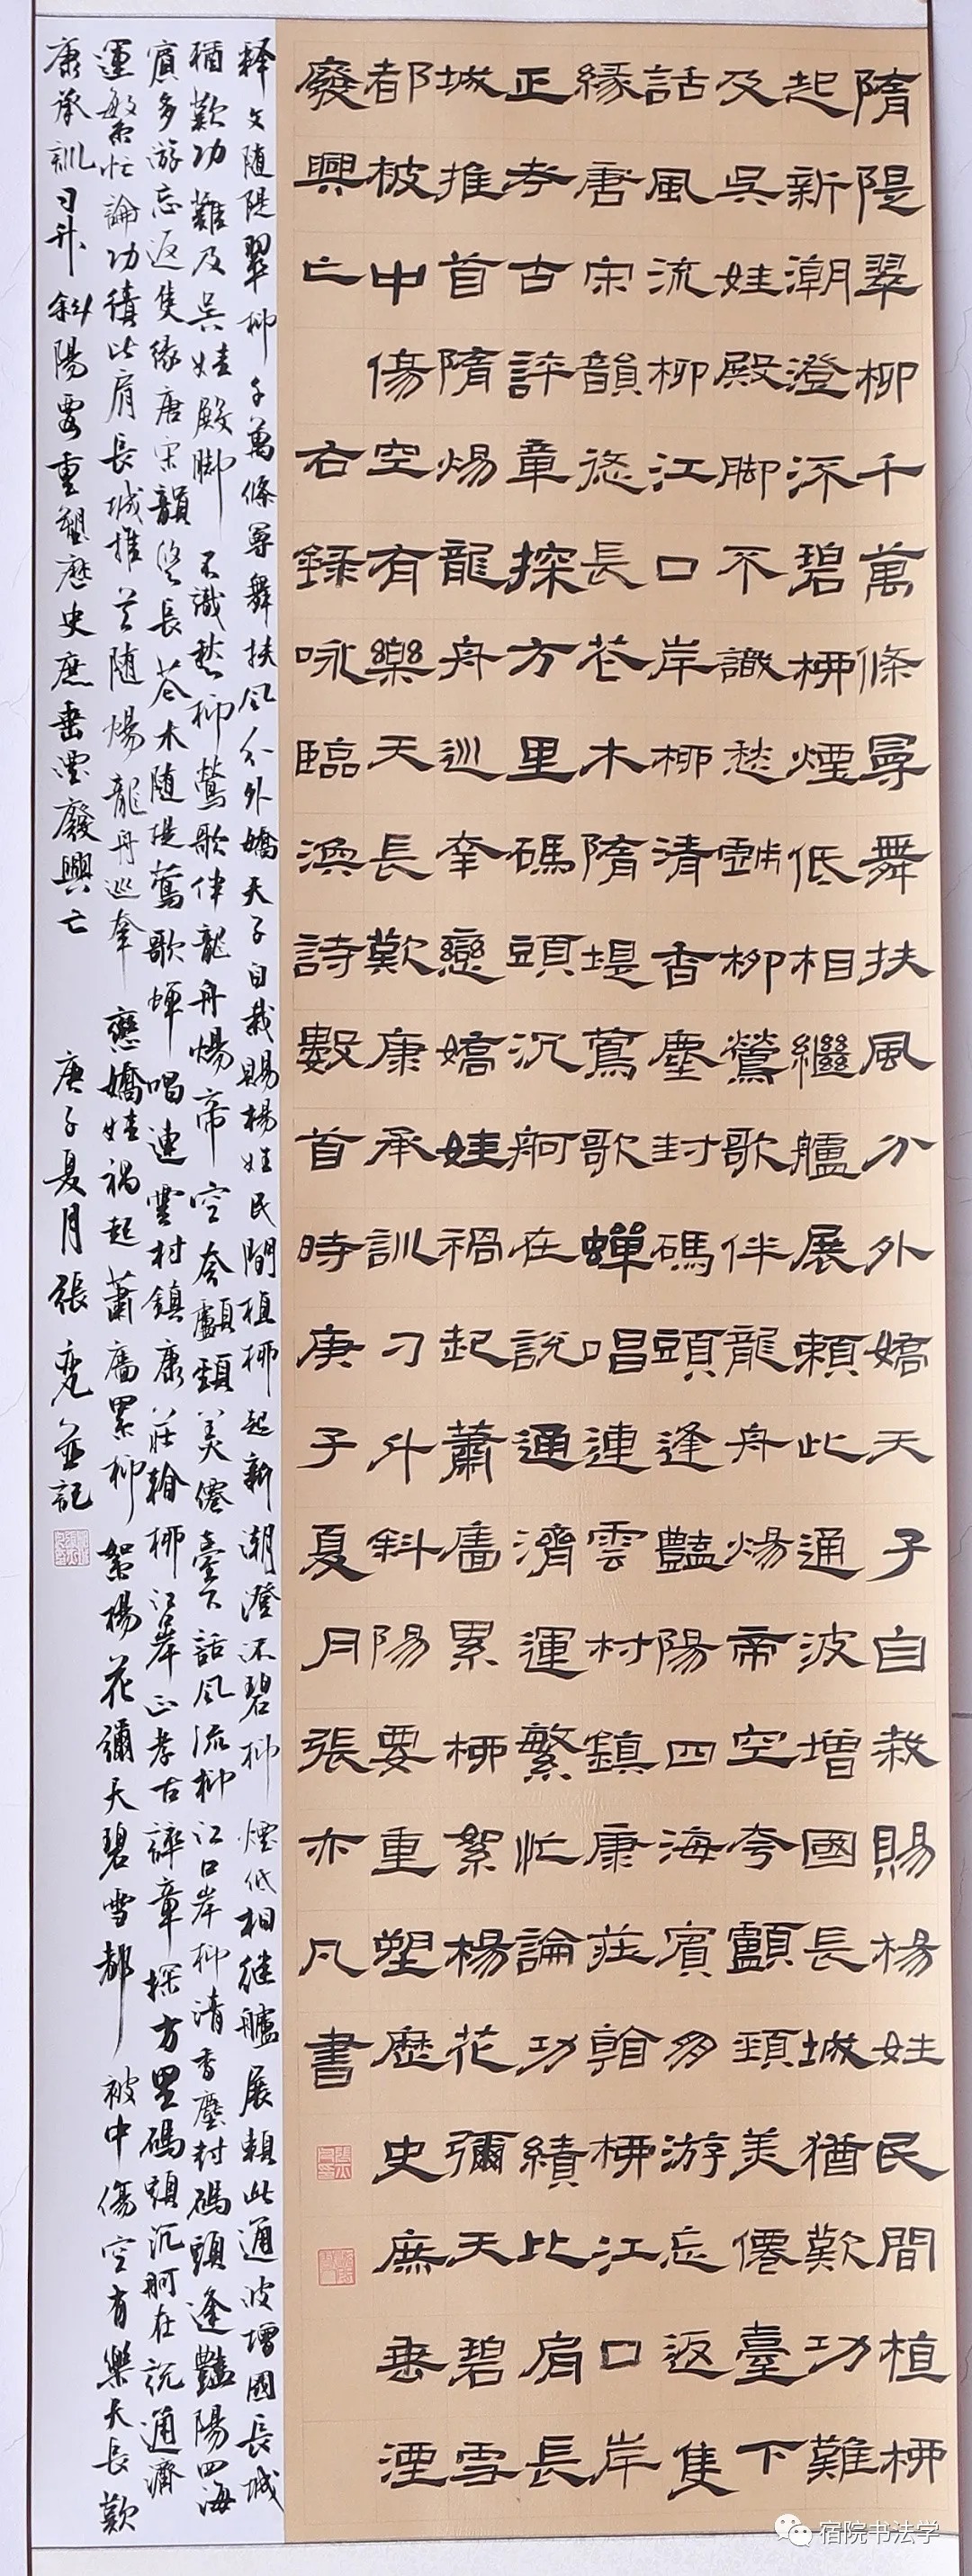 隋隄翠柳千萬條㝵舞扶風分外嬌天子自栽賜楊娃民間植柳
起新潮澄不碧柳煙低相繼艫展賴此通波增國長城猶歎功難
及吳娃殿脚不識愁柳鶯歌伴龍舟煬帝空夸顱頸美僊臺下
話風流柳江口岸柳清香塵封碼頭逢豔陽四海賓多游忘返隻
緣唐宋韻悠長花木隋堤鶯歌蟬唱連雲村鎮康莊翰柳江口岸
正考古評章探方里碼頭沉舸在説通濟運繁忙論功績比肩長
城推首隋煬龍舟巡幸戀嬌娃禍起蕭牆累柳絮楊花彌天碧雪
都被中傷空有樂天長歎康承訓刁斗斜陽要重塑歷史庶垂湮
廢興亡
右錄咏臨渙詩數首時庚子夏月張亦凡書
釋文隨隄翠柳千萬條㝵舞扶風分外嬌天子自栽賜楊娃民間植柳起新潮澄不碧柳煙低相繼艫展賴此通波增國長城
猶歎功難及吳娃殿脚不識愁柳鶯歌伴龍舟煬帝空夸顱頸美僊臺下話風流柳江口岸柳清香塵封碼頭逢豔陽四海
賓多游忘返隻緣唐宋韻悠長花木隨堤鶯歌蟬唱連雲村鎮康莊翰柳江口岸正考古評章探方里碼頭沉舸在説通濟
運繁忙論功績比肩長城推首隨煬龍舟巡幸戀嬌娃禍起蕭牆累柳絮楊花彌天碧雪都被中傷空有樂天長歎
康承訓刁斗斜陽要重塑歷史庶垂湮廢興亡 庚子夏月張亦凡並記
宿院书法学